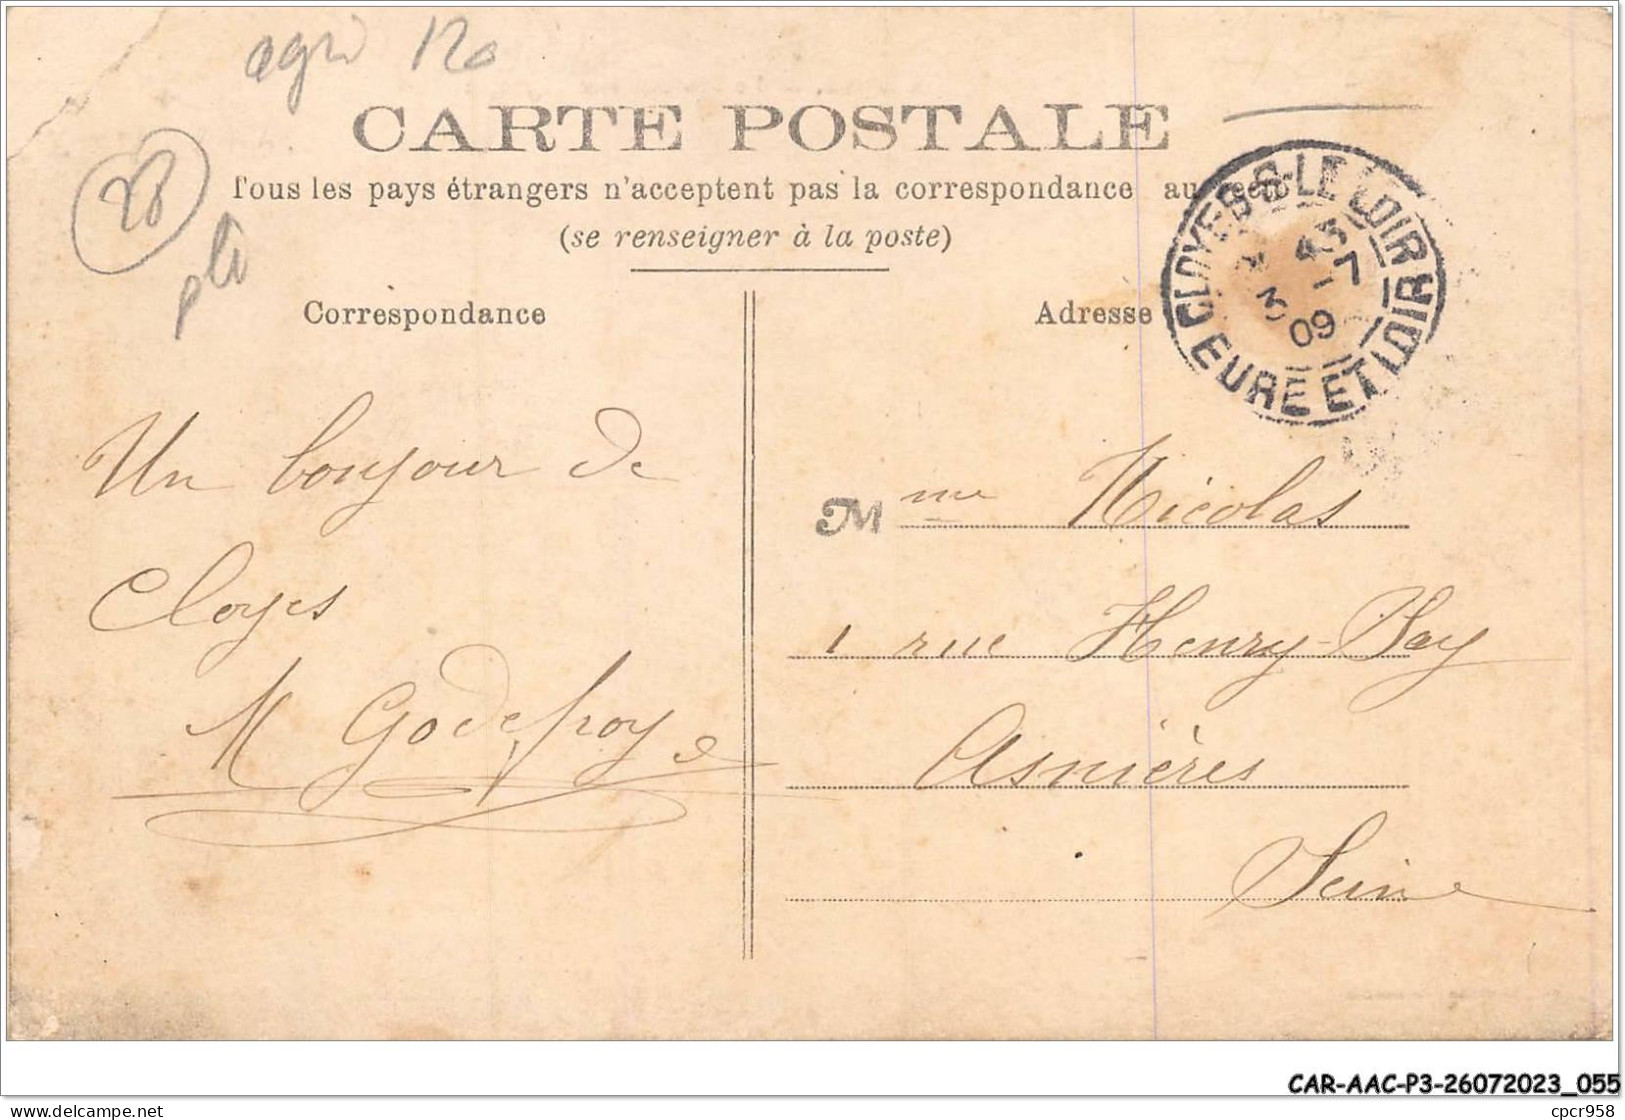 agri 120
CARTE POSTALE
Tous les pays étrangers n'acceptent pas la correspondance au recto
(se renseigner à la poste)
28
pli
Correspondance
Adresse
CLOYES-S-LE LOIR
EURE ET LOIR
* 43
3 -7
09
Un bonjour de
Cloyes
M Godefroy
Mme Nicolas
1 rue Henry-Bay
Asnières
Seine
CAR-AAC-P3-26072023_055
delcampe.net
cpcr958